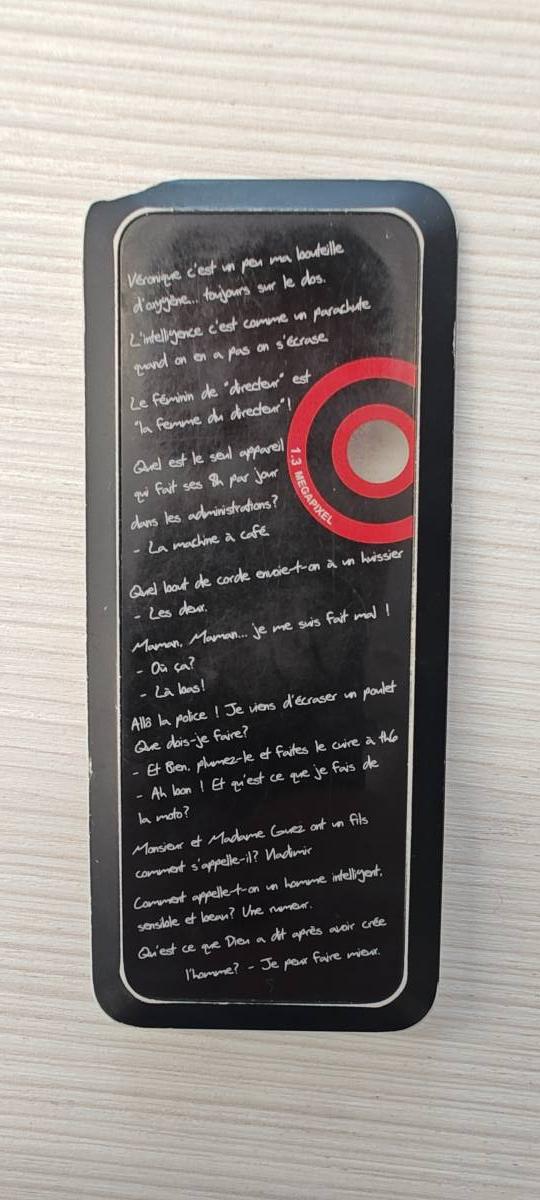 Véronique c'est un peu ma bouteille
d'oxygène... toujours sur le dos.
L'intelligence c'est comme un parachute
quand on en a pas on s'écrase
Le féminin de "directeur" est
"la femme du directeur"!
Quel est le seul appareil
qui fait ses 8h par jour
dans les administrations?
- La machine à café
1.3 MEGAPIXEL
Quel bout de corde envoie-t-on à un huissier
- Les deux.
Maman, Maman... je me suis fait mal !
- Où ça?
- Là bas!
Allô la police ! Je viens d'écraser un poulet
Que dois-je faire?
- Et Bien, plumez-le et faites le cuire à th6
- Ah bon ! Et qu'est ce que je fais de
la moto?
Monsieur et Madame Guez ont un fils
comment s'appelle-il? Vladimir
Comment appelle-t-on un homme intelligent,
sensible et beau? Une rumeur.
Qu'est ce que Dieu a dit après avoir crée
l'homme? - Je peux faire mieux.